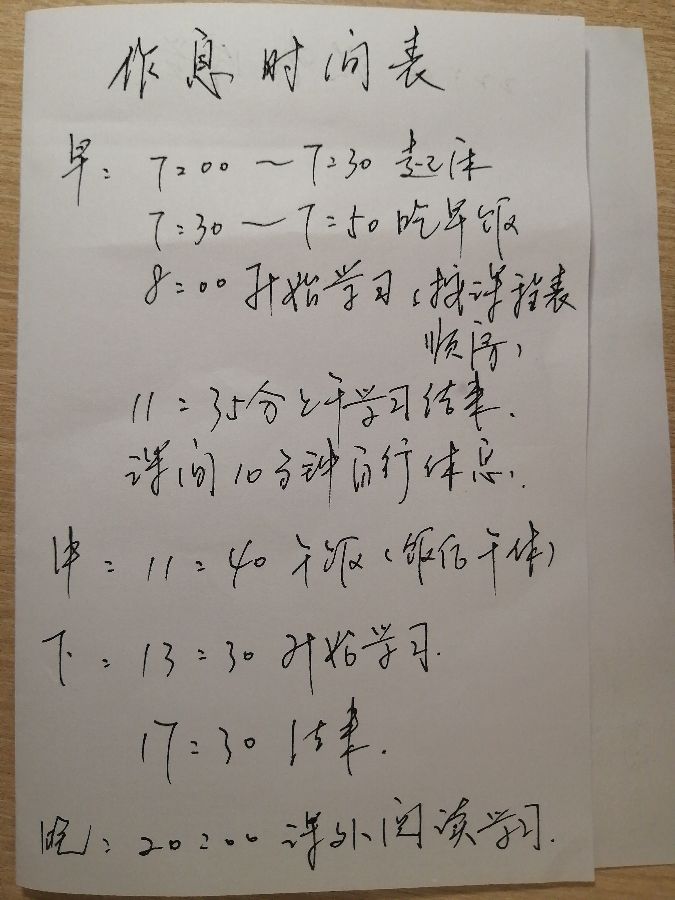 作息时间表
早：7：00～7：30 起床
7：30～7：50吃早饭
8：00 开始学习（按课程表
顺序）
11：35分上午学习结束.
课间10分钟自行休息.
中：11：40 午饭（饭后午休）
下：13：30 开始学习.
17：30 结束.
晚：20：00 课外阅读学习.